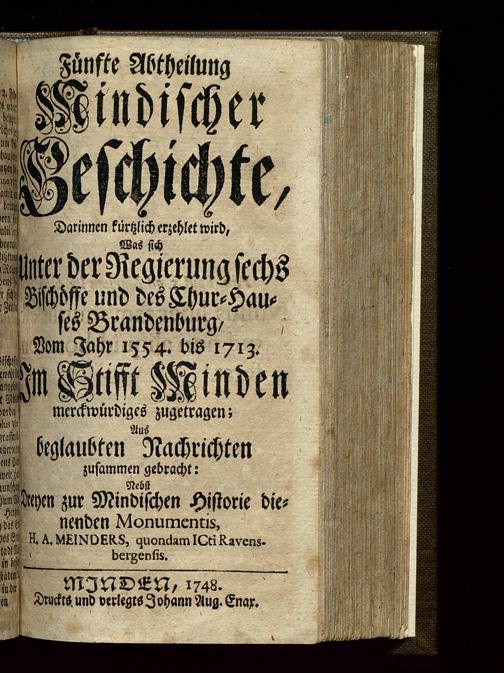 Fünfte Abtheilung
Mindischer
Geschichte,
Darinnen kürtzlich erzehlet wird,
Was sich
Unter der Regierung sechs
Bischöffe und des Chur-Hau-
ses Brandenburg,
Vom Jahr 1554. bis 1713.
Im Stifft Minden
merckwürdiges zugetragen;
Aus
beglaubten Nachrichten
zusammen gebracht:
Nebst
Dreyen zur Mindischen Historie die-
nenden Monumentis,
H. A. MEINDERS, quondam ICti Ravens-
bergensis.
MINDEN, 1748.
Druckts und verlegts Johann Aug. Enax.